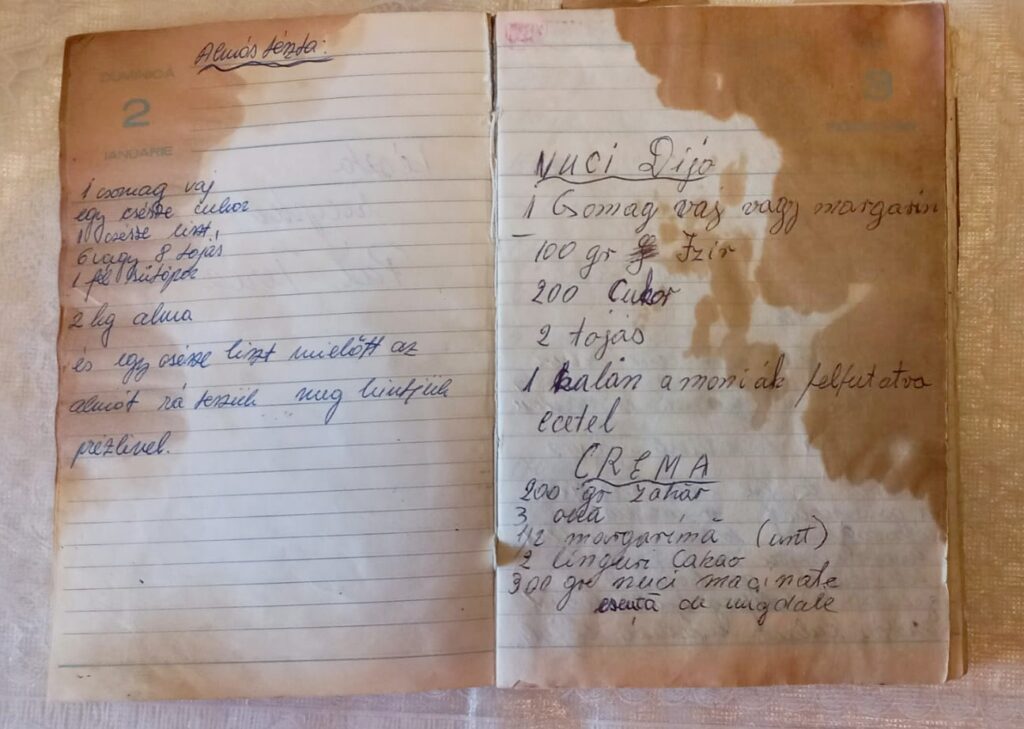 Almás tészta:
DUMINICĂ
2
IANUARIE
1 csomag vaj
egy csésze cukor
1 csésze liszt
6 vagy 8 tojás
1 fél sütőpor
2 kg alma
és egy csésze liszt mielőtt az
almát rá teszük meg hintjük
prézlivel.
3
NUCI Dijó
1 Csomag vaj vagy margarin
100 gr Izir
200 Cukor
2 tojás
1 kalán amoniák felfutatva
ecetel
CREMA
200 gr zahăr
3 ouă
1/2 margarimă (unt)
2 linguri Cakao
300 gr nuci macinate
esență de migdale